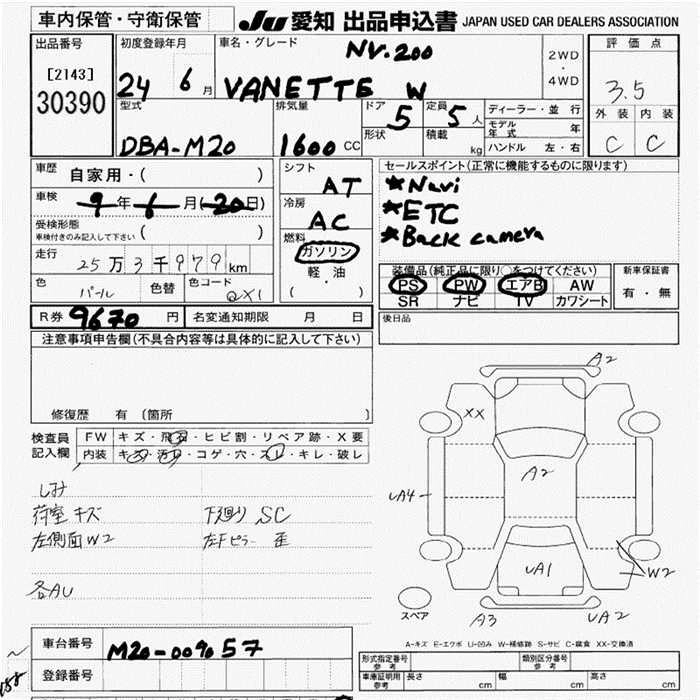 車内保管・守衛保管
JU 愛知 出品申込書 JAPAN USED CAR DEALERS ASSOCIATION
出品番号
[2143]
30390
初度登録年月
24 6月
車名・グレード
NV.200
VANETTE W
2WD
・
4WD
評価点
3.5
外装 内装
C C
型式
DBA-M20
排気量
1600 CC
ドア 5
形状
定員 5人
積載 kg
ディーラー・並行
モデル年式 年
ハンドル 左・右
車歴 自家用・( )
車検 9年6月(20日)
受検形態
車検付きのみ記入して下さい ( )
走行
25万3千979km
色 パール 色替 色コード QX1
シフト
AT
冷房
AC
燃料
ガソリン
軽・油
( )
セールスポイント(正常に機能するものに限ります)
*Navi
*ETC
*Back camera
装備品(純正品に限り○をつけてください)
PS PW エアB AW
SR ナビ TV カワシート
新車保証書
有・無
R券 9670円 名変通知期限 月 日
後日品
注意事項申告欄(不具合内容等は具体的に記入して下さい)
修復歴 有 〔箇所 〕
検査員記入欄
FW キズ・飛石・ヒビ割・リペア跡・X要
内装 キズ・汚れ・コゲ・穴・スレ・キレ・破レ
しみ
荷室 キズ 下廻り SC
左側面W2 左Fピラー 歪
各AU
A2
XX
A2
UA4
UA1
W2
スペア
A3
UA2
A-キズ E-エクボ U-凹み W-補修跡 S-サビ C-腐食 XX-交換済
車台番号 M20-009057
登録番号
形式指定番号
参考
類別区分番号
参考
車庫証明用
参考
長さ cm 幅 cm 高さ cm